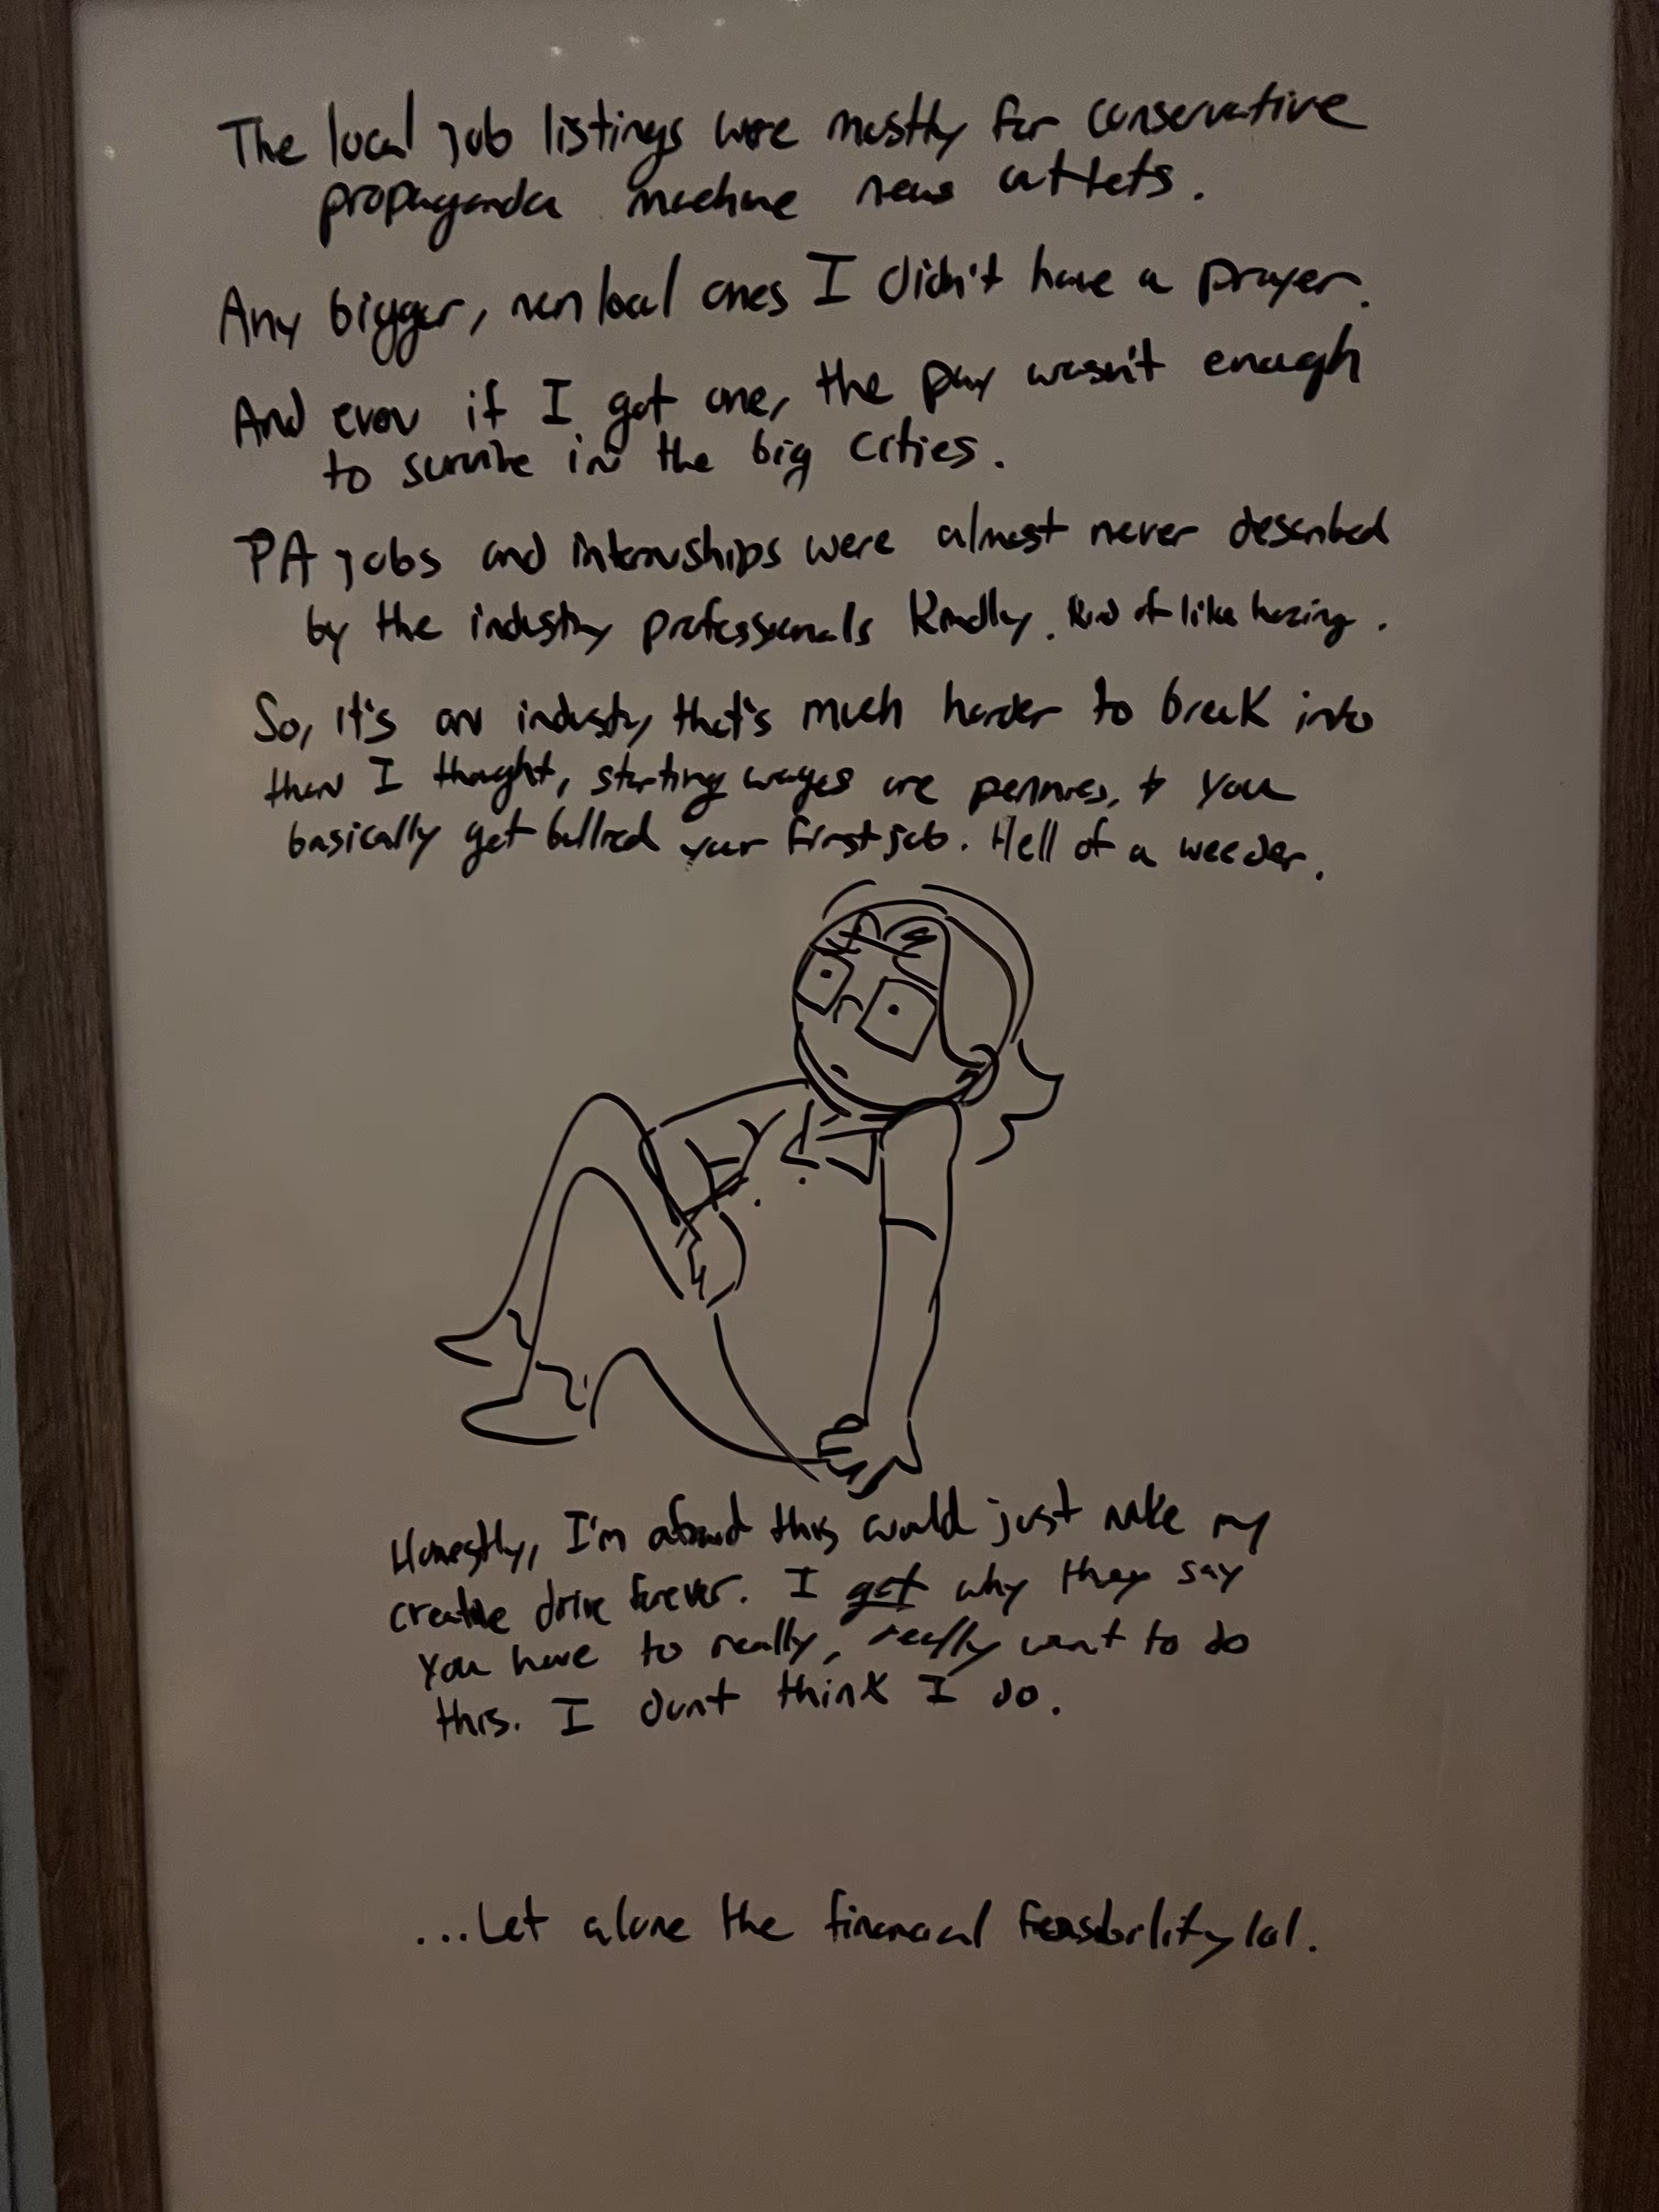 The local job listings were mostly for conservative
propaganda machine news outlets.
Any bigger, non local ones I didn't have a prayer.
And even if I got one, the pay wasn't enough
to survive in the big cities.
PA jobs and internships were almost never described
by the industry professionals kindly. Kind of like hazing.
So, it's an industry that's much harder to break into
than I thought, starting wages are pennies, + you
basically get bullied your first job. Hell of a weeder.
Honestly, I'm afraid this would just nuke my
creative drive forever. I get why they say
you have to really, really want to do
this. I dont think I do.
...Let alone the financial feasibility lol.